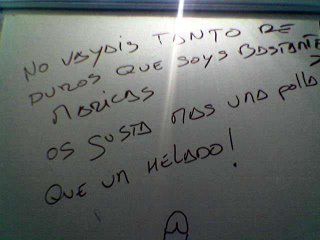 NO VAYAIS TANTO DE
DUROS QUE SOYS BASTANTE
MARICAS
OS GUSTA MAS UNA POllA
QUE UN HELADO!